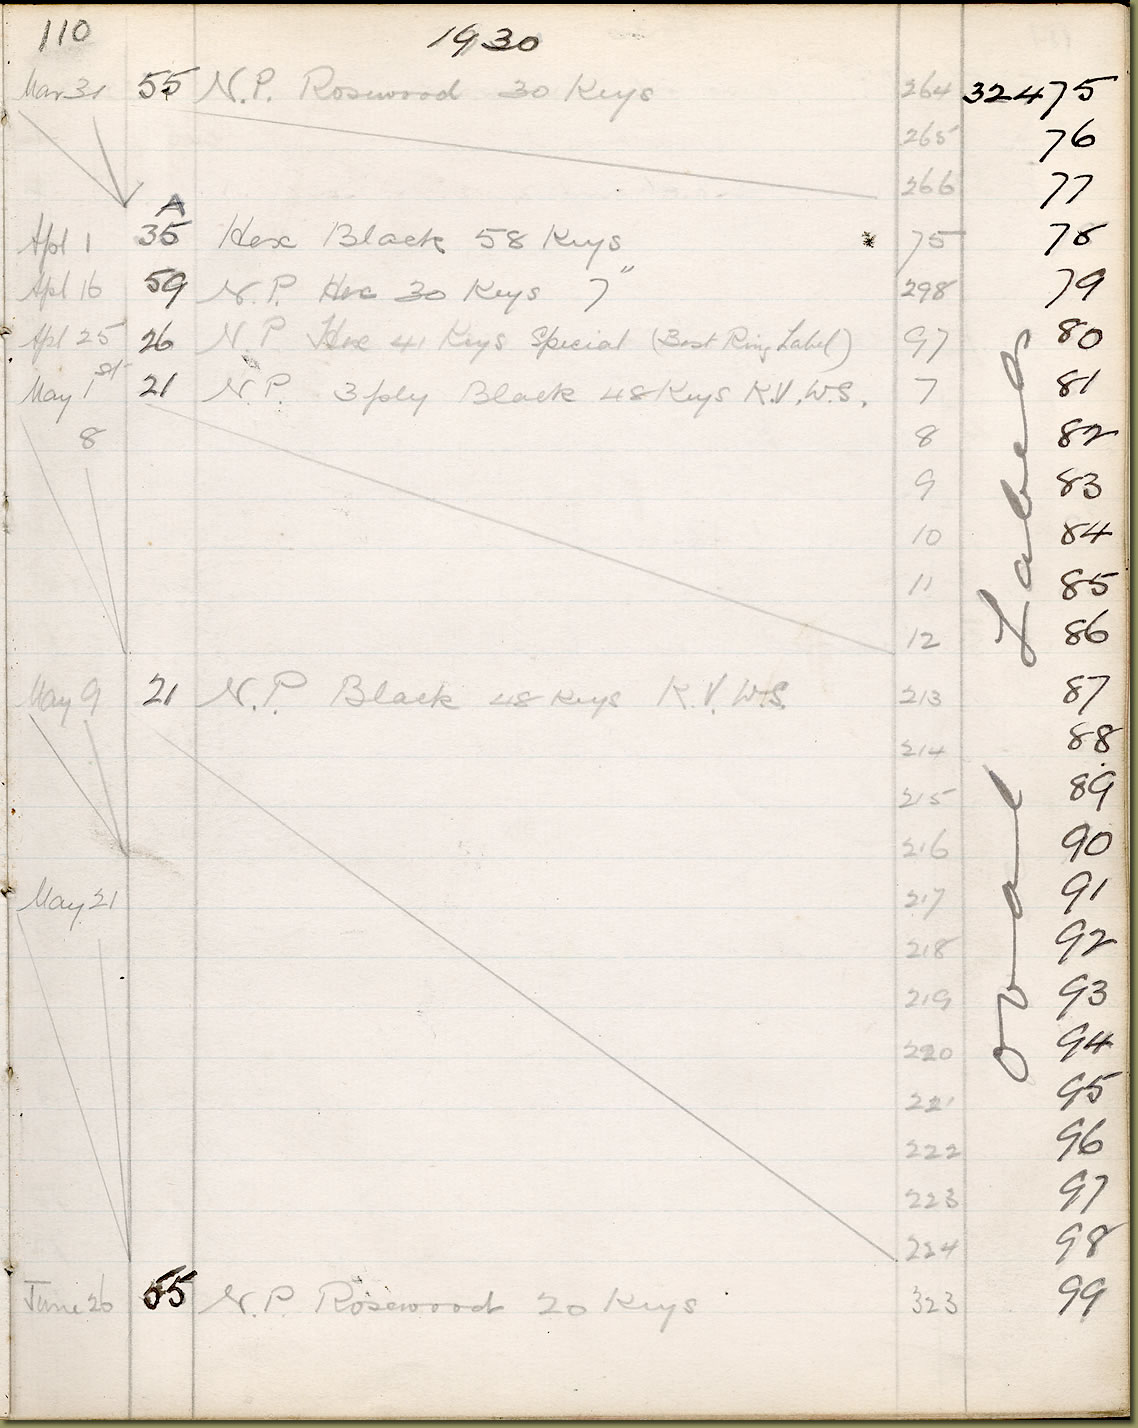 110
1930
Mar 31 55 N.P. Rosewood 30 Keys 264 32475
265 76
266 77
A
Apl 1 35 Hex Black 58 Keys * 75 78
Apl 16 59 N.P. Hex 30 Keys 7" 298 79
Apl 25 26 N.P Hex 41 Keys Special (Best Ring Label) 97 80
May 1st 21 N.P. 3 ply Black 48 Keys R.V.W.S. 7 81
8 8 82
9 83
10 84
11 85
12 86
May 9 21 N.P. Black 48 Keys R.V.W.S. 213 87
214 88
215 89
216 90
May 21 217 91
218 92
219 93
220 94
221 95
222 96
223 97
224 98
June 26 55 N.P. Rosewood 20 Keys 323 99
Oval Labels